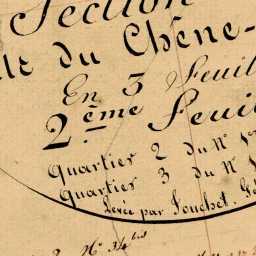 Section
du Chêne-
En 3 Feuil
2ème Feui
Quartier 2 du N° 1
Quartier 3 du N° 1
Levée par Souchet. G
N° 34bis